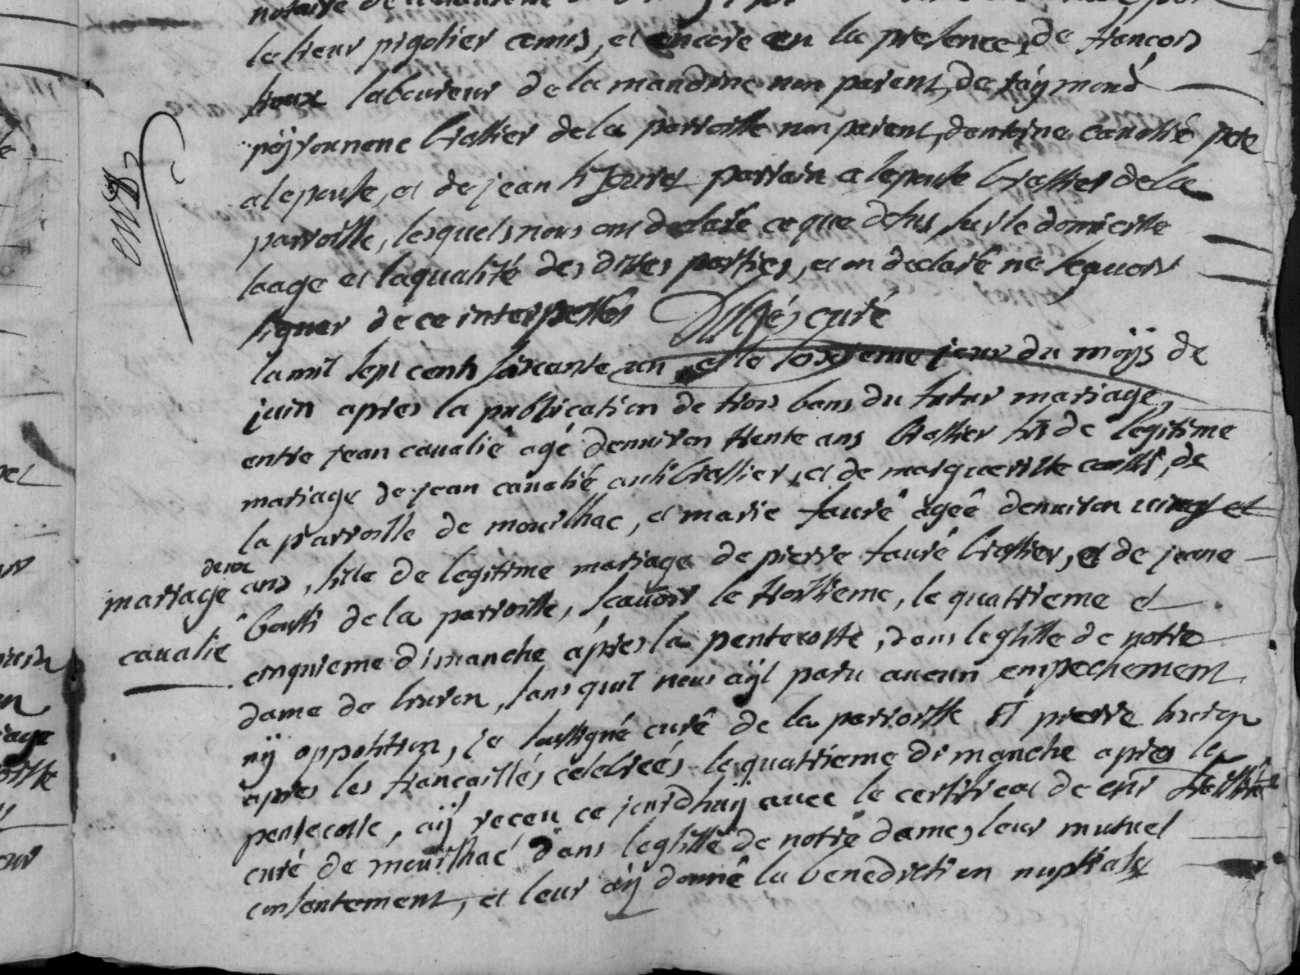 le sieur pigotier commis, et encore en la presence, de francois
laboureur de la mandine non parent, de raymond
peyronnene brassier de la parroisse non parent, dantoine cavalié pere
a lepouse, et de jean parrain a lepouse brassier de la
parroisse, lesquels nous ont declaré ce que dessus sur le domicille
laage et la qualité des dittes parties, et on declaré ne scavoir
signer de ce interpellés curé
lan mil sept cents soixante un et le jour du moÿs de
juin apres la publication de trois bans du futur mariage
entre jean cavalié agé denviron trente ans brassier fils de legitime
mariage de jean cavalié brassier, et de margueritte de
la parroisse de mouilhac, et marie fauré agée denviron vingt et
deux
mariage ans, fille de legitime mariage de pierre fauré brassier, et de jeane
cavalié
de la parroisse, scavoir le troisieme, le quatrieme et
cinquieme dimanche apres la pentecoste, dans leglise de notre
dame de livron, sans quil nous aÿt paru aucun empechement
nÿ opposition, je soussigné curé de la parroisse St pierre livron
apres les fiancailles celebreés le quatrieme dimanche apres la
pentecoste, aÿ receu ce jourdhuÿ avec le certificat de
curé de mouilhac dans leglise de notre dame, leur mutuel
consentement, et leur aÿ donné la benediction nuptiale